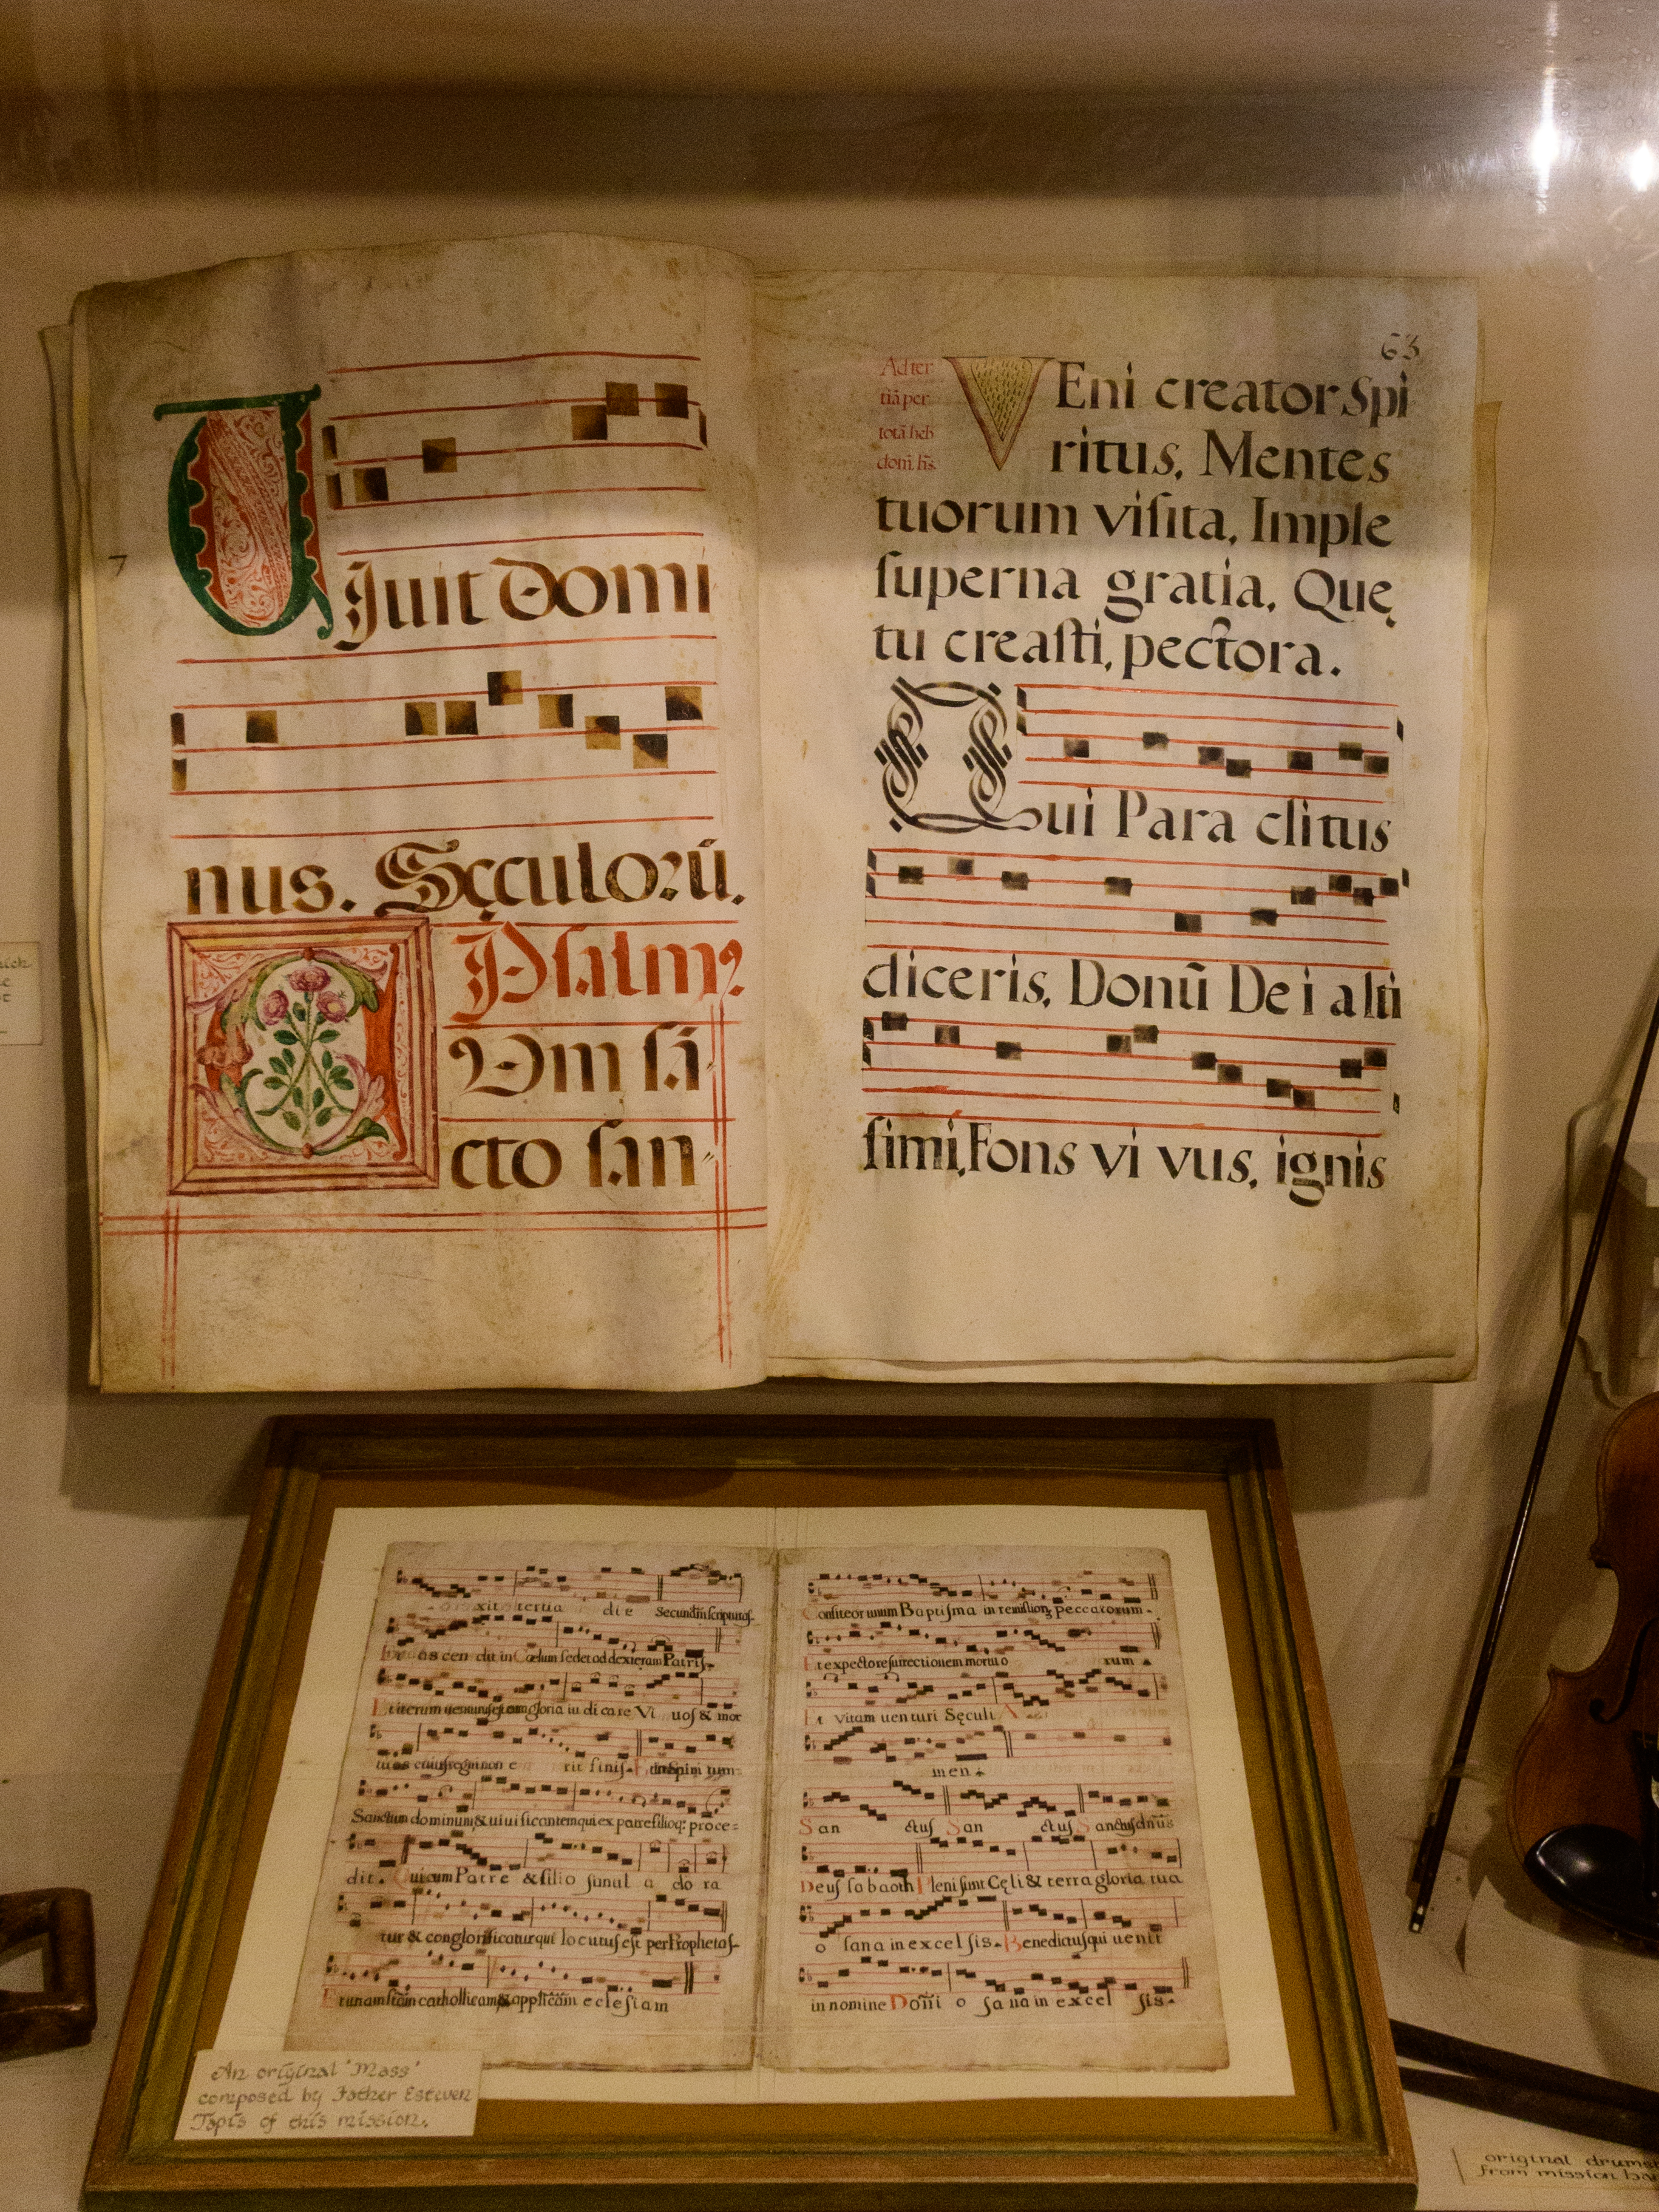 7
Juit Domi
nus. Sęculorū.
Psalm9
Dm sā
cto san
63
Ad ter
tiā per
totā heb
dom. hs.
VEni creator Spi
ritus, Mentes
tuorum viſita, Imple
ſuperna gratia, Quę
tu creaſti, pectora.
Qui Para clitus
diceris, Donū De i alti
ſimi, Fons vi vus, ignis
xit tertia die Secundūm ſcripturaſ
as cen dit in Cælum ſedet ad dexteram Patriſ.
Et iterum gloria iu di care Vi uoſ & mor
tuos cuiuſ regni non e rit finiſ.
Sanctum dominum & uiuificantem qui ex patre filioq; proce=
dit. Qui cum Patre & filio ſimul a do ra
tur & conglorificatur qui locutuſ eſt per Prophetaſ
Et unam ſtām catholicam & appſticām ecleſiam
Confiteor unum Baptiſma in peccatorum.
Et expecto reſurrectionem mortuo rum
Et vitam uen turi Sęculi A
men.
San ctuſ San ctuſ Sanctuſ dn̄us
Deuſ ſabaoth Pleni ſunt Cęli & terra gloria tua
o ſana in excel ſis. Benedictuſ qui uenit
in nomine Domi o ſa na in excel ſis.
An original 'Mass'
composed by Father Estiven
Tapis of this mission.
original drums
from mission